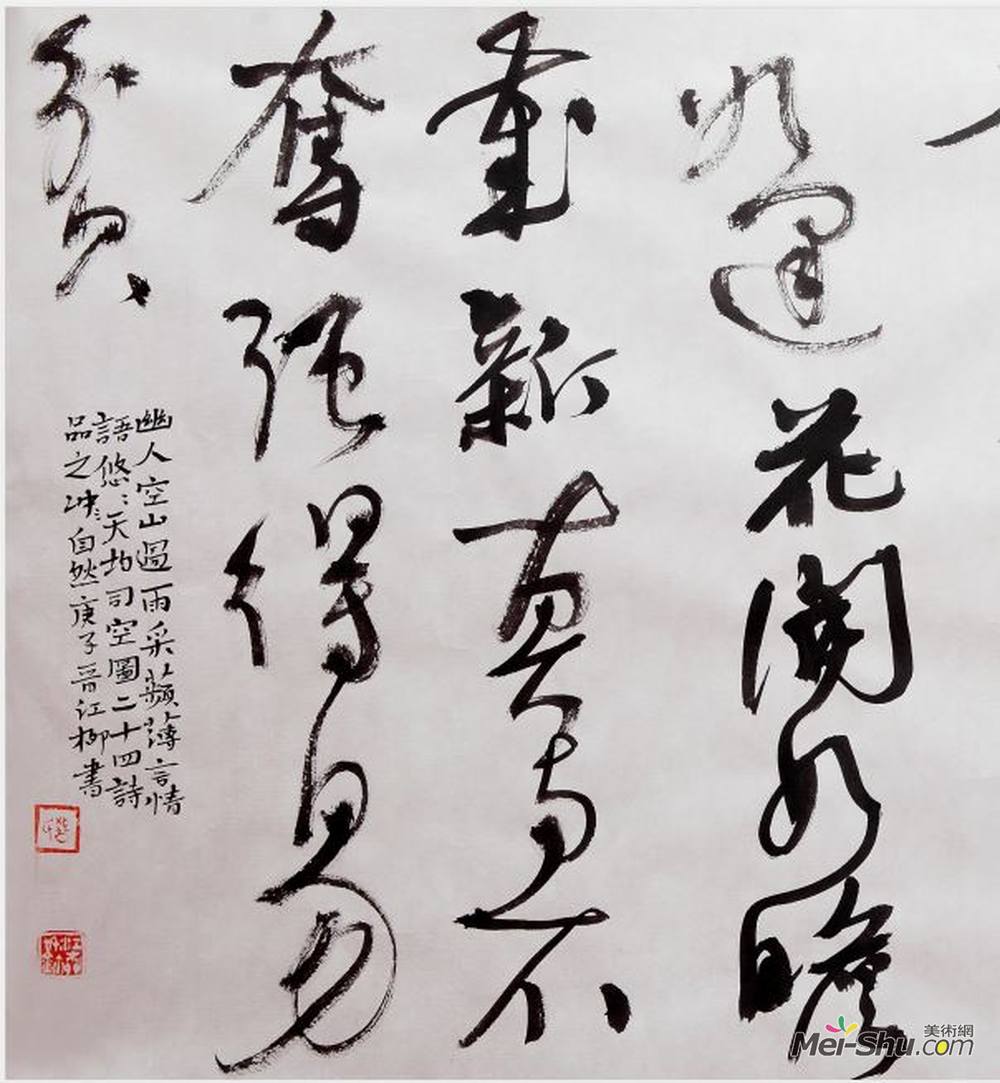 如逢花開如瞻
歲新真与不
奪强得易
貧
幽人空山過雨采蘋薄言情
語悠〻天均司空圖二十四詩
品之 自然庚子晋江柳書
美術網
Mei-Shu.com